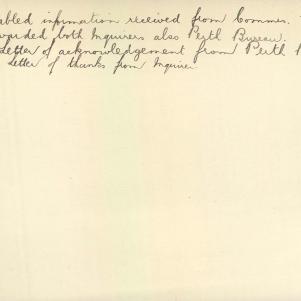 abled information received from Commis.
warded both Inquirers also Perth Bureau.
Letter of acknowledgement from Perth
Letter of thanks from Inquirer